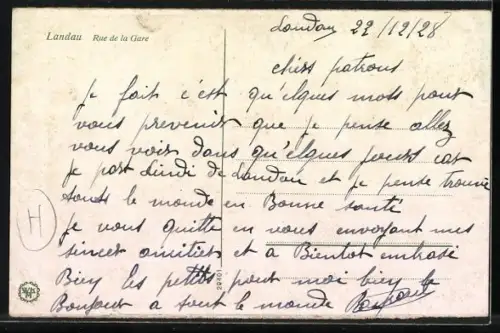 Landau Rue de la Gare
Landau 22/12/28
chers patrons
Je fait c'est qu'elques mots pour
vous prevenir que je pense allez
vous voir dans qu'elques jours car
je part lindi de Landau et je pense trouvé
touts le monde en Bonne santé
je vous quitte en vous envoyant mes
sincer amitiés et a Bientot embrasé
Bien les petits pour moi bien le
Bonjour a tout le monde
H
29401